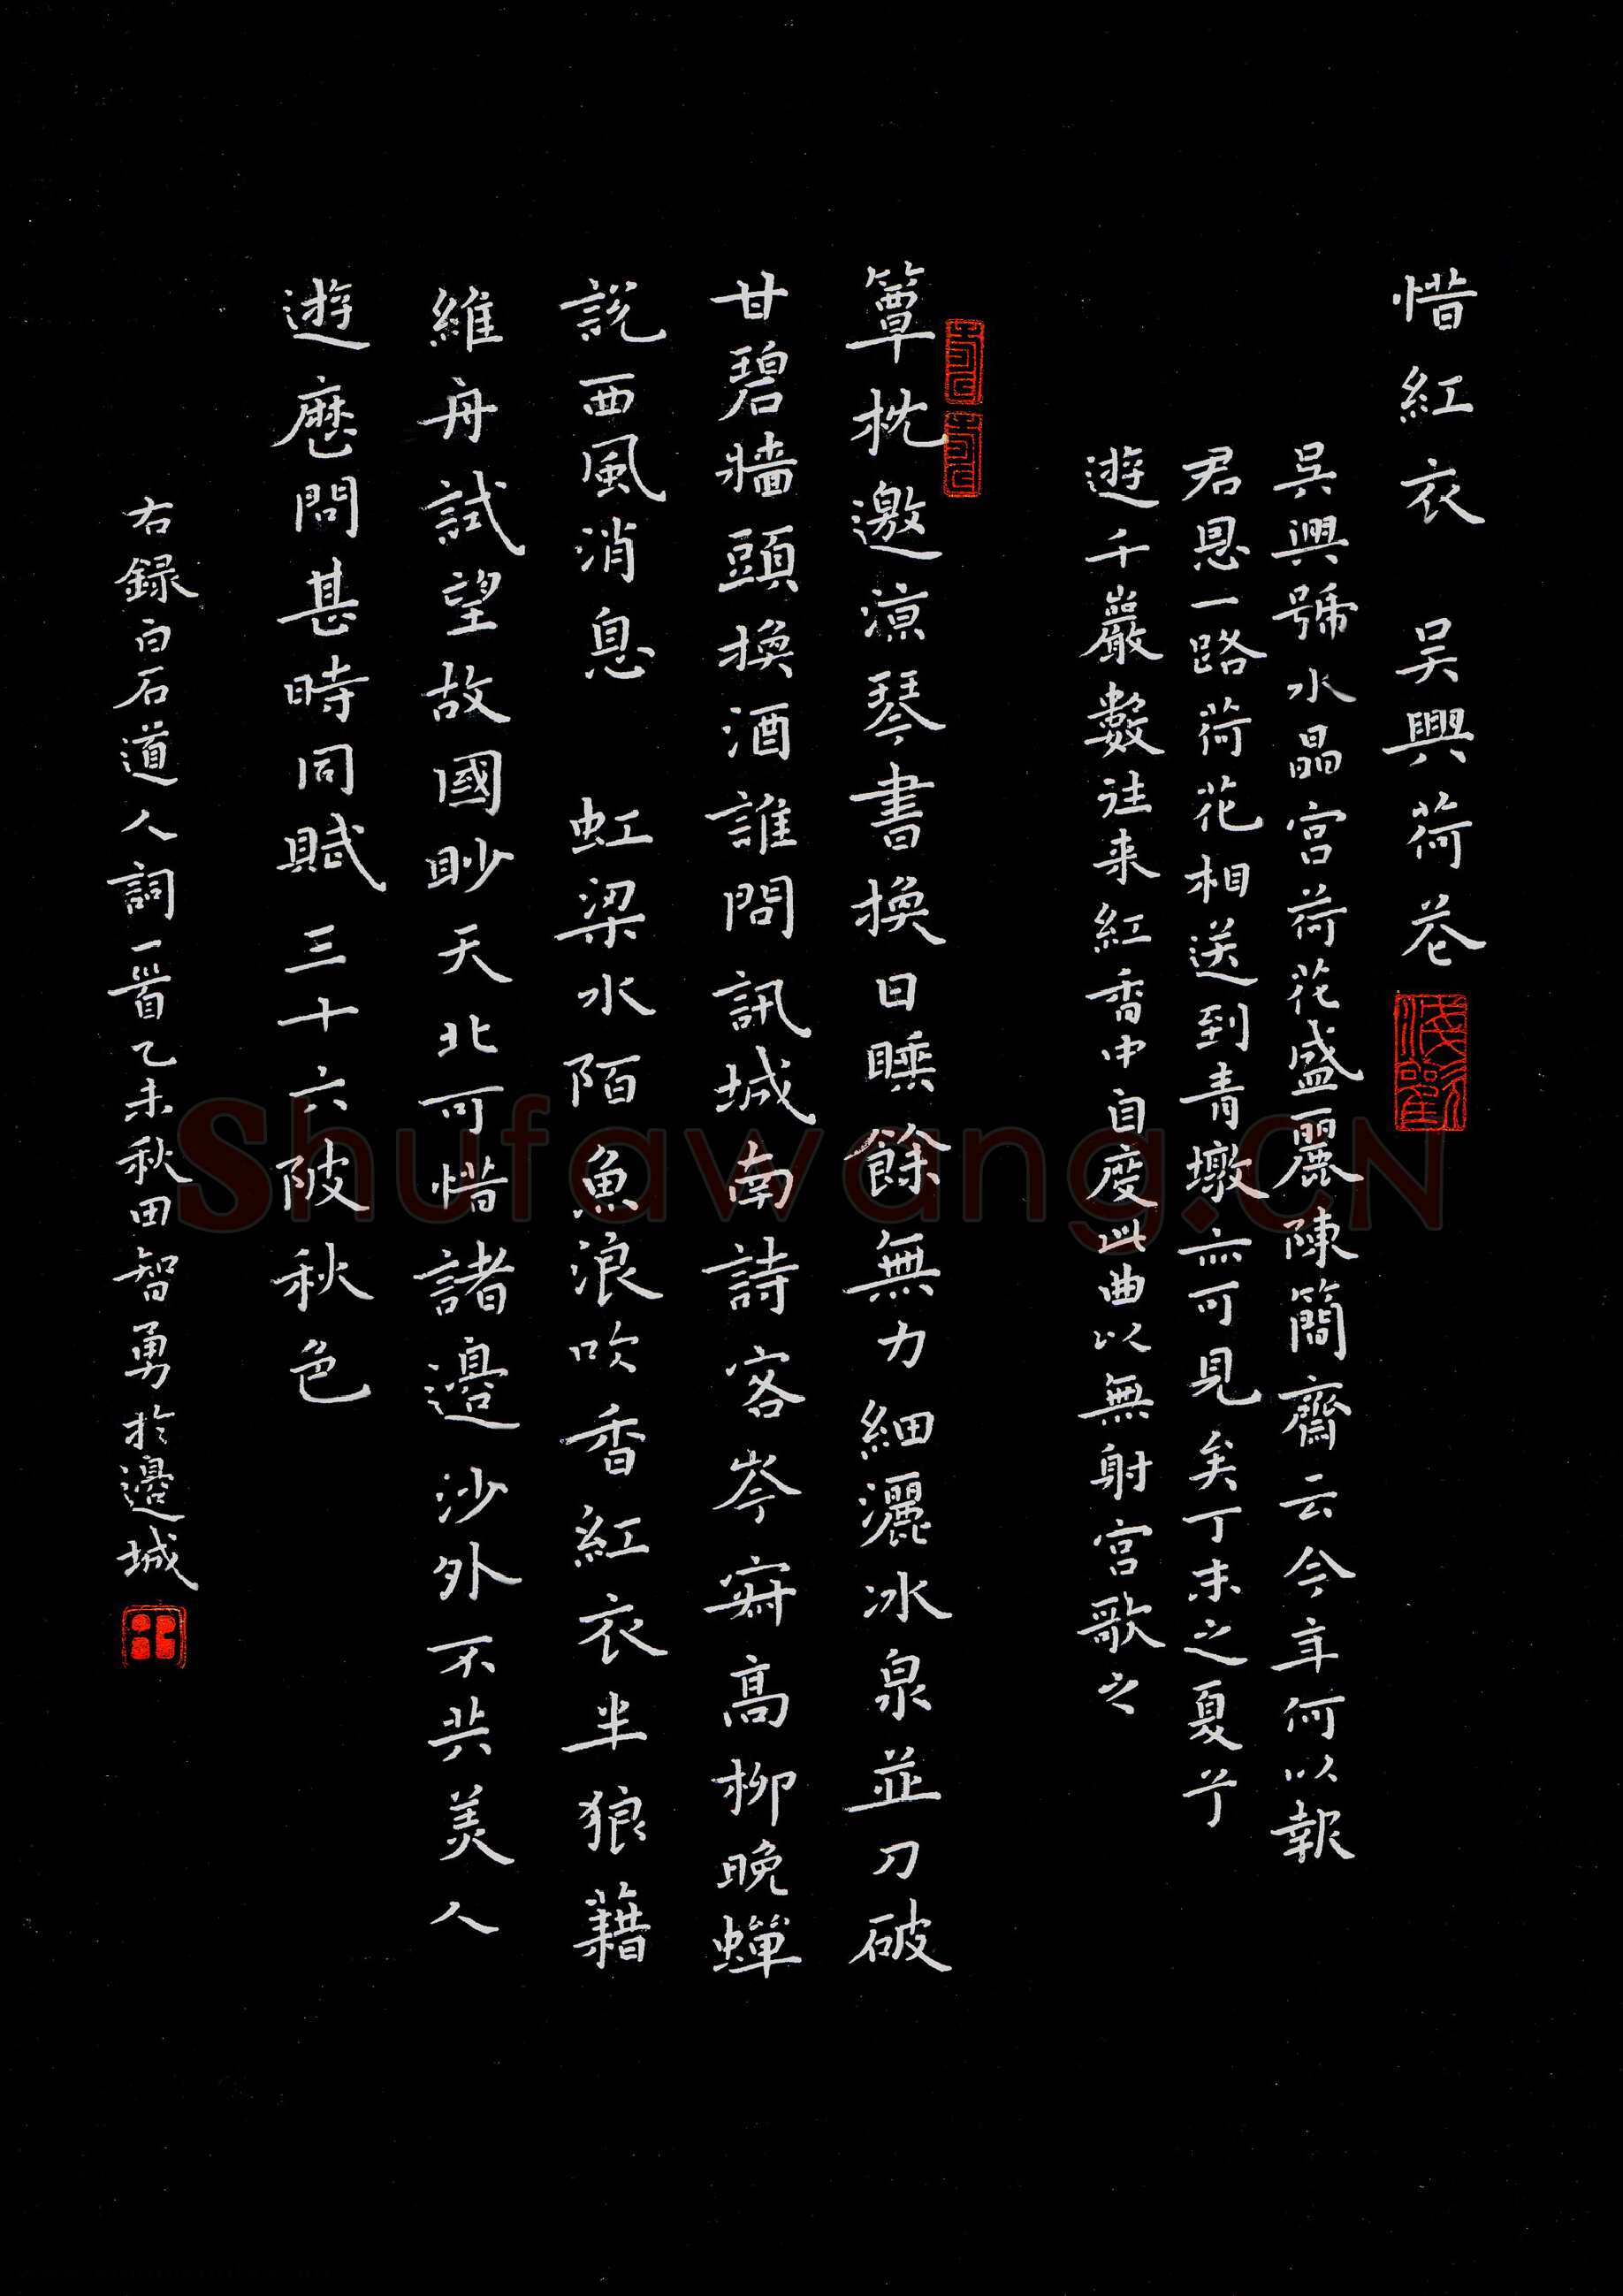 惜紅衣　吴興荷花
吴興號水晶宮荷花盛麗陳簡齋云今年何以報
君恩一路荷花相送到青墩亦可見矣丁未之夏予
遊千巖數往来紅香中自度此曲以無射宮歌之
簟枕邀涼琴書換日睡餘無力細灑冰泉並刀破
甘碧牆頭換酒誰問訊城南詩客岑寂高柳晚蟬
説西風消息　虹梁水陌魚浪吹香紅衣半狼藉
維舟試望故國眇天北可惜諸邊沙外不共美人
遊歷問甚時同賦三十六陂秋色
右録白石道人詞一首乙未秋田智勇於邊城
Shufawang.CN